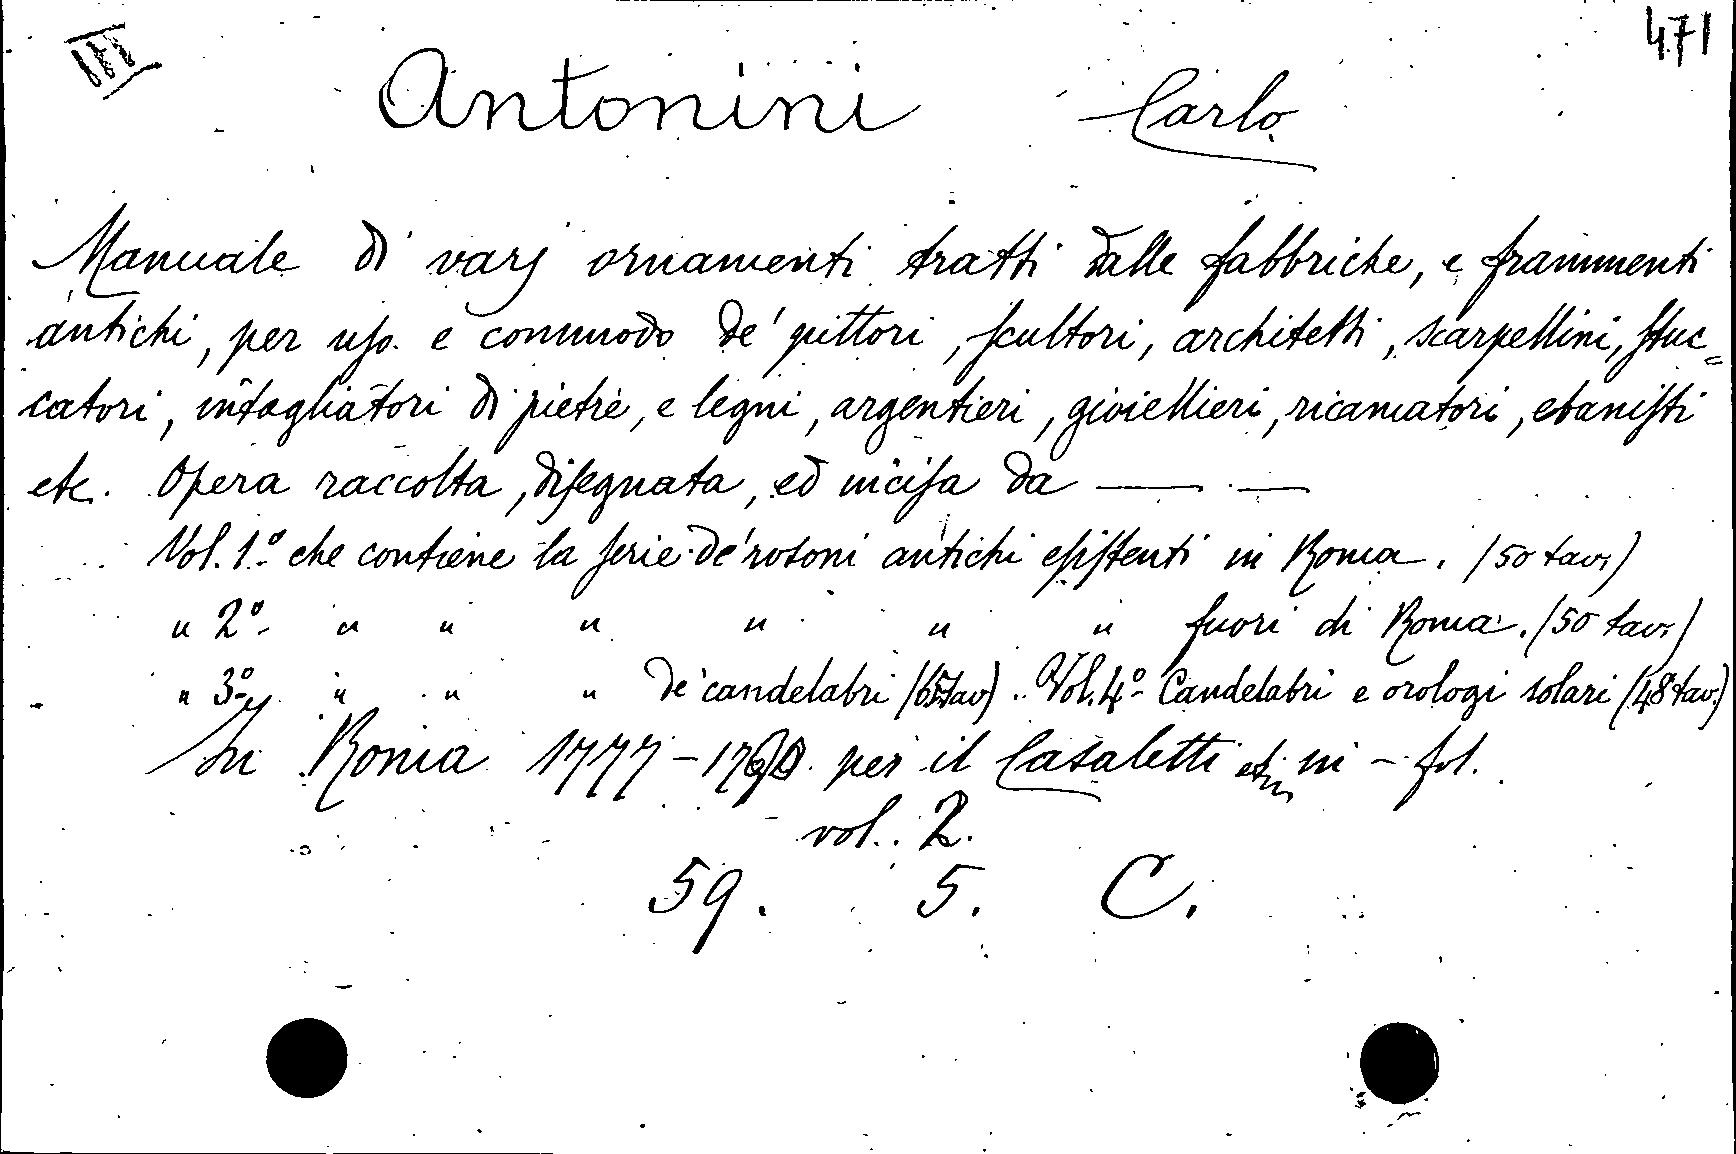 III 471
Antonini Carlo
Manuale di varj ornamenti tratti dalle fabbriche, e frammenti
antichi, per uso e commodo de' pittori, scultori, architetti, scarpellini, stuc=
catori, intagliatori di pietre, e legni, argentieri, gioiellieri, ricamatori, ebanisti
etc. Opera raccolta, disegnata, ed incisa da — —
Vol. 1.º che contiene la serie de' rosoni antichi esistenti in Roma. (50 tav.)
" 2º " " " " " " fuori di Roma. (50 tav.)
" 3º " " " de' candelabri (65 tav) . Vol. 4º Candelabri e orologi solari (48 tav.)
In Roma 1777-1790 per il Casaletti etc. in - fol.
vol. 2.
59. 5. C.